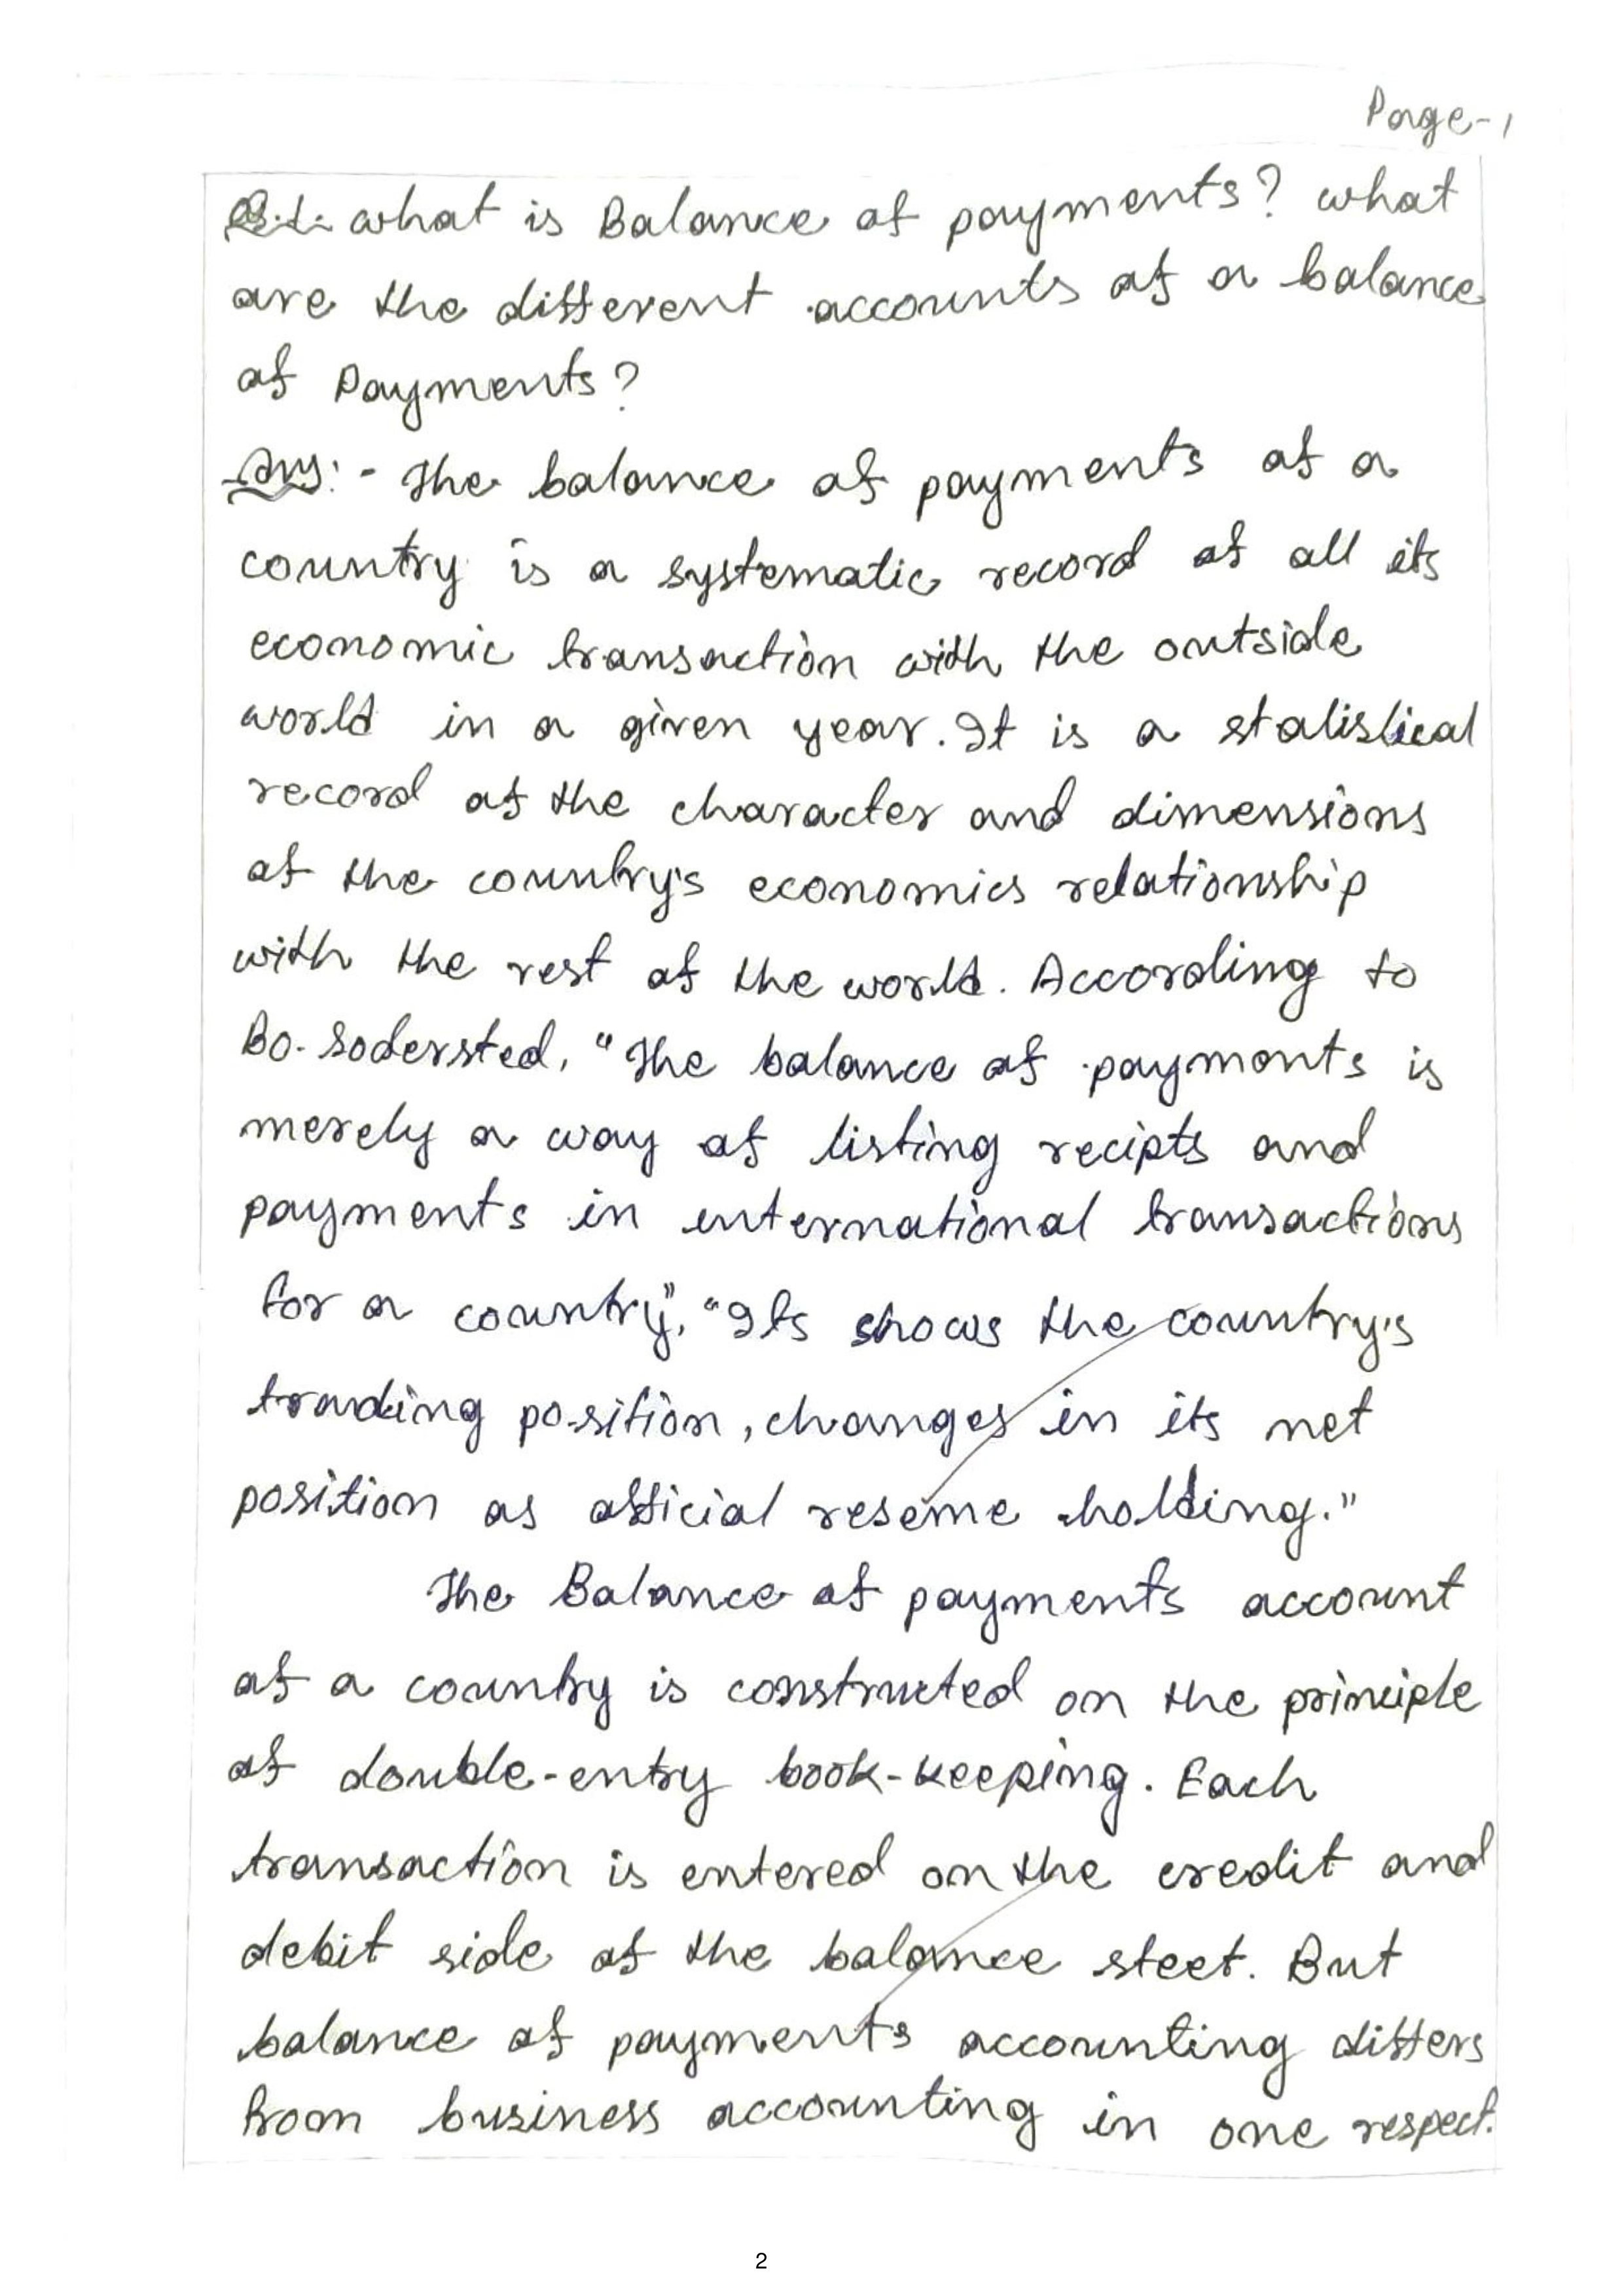 Page-1
Q.1. what is Balance of payments? what
are the different accounts of a balance
of Payments?
Ans:- The balance of payments of a
country is a systematic record of all its
economic transaction with the outside
world in a given year. It is a statistical
record of the character and dimensions
of the country's economics relationship
with the rest of the world. According to
Bo. Sodersted, "The balance of payments is
merely a way of listing recipts and
payments in international transactions
for a country", "Its shows the country's
trading position, changes in its net
position as official reseme holding."
The Balance of payments account
of a country is constructed on the principle
of double-entry book-keeping. Each
transaction is entered on the credit and
debit side of the balance steet. But
balance of payments accounting differs
from business accounting in one respect.
2